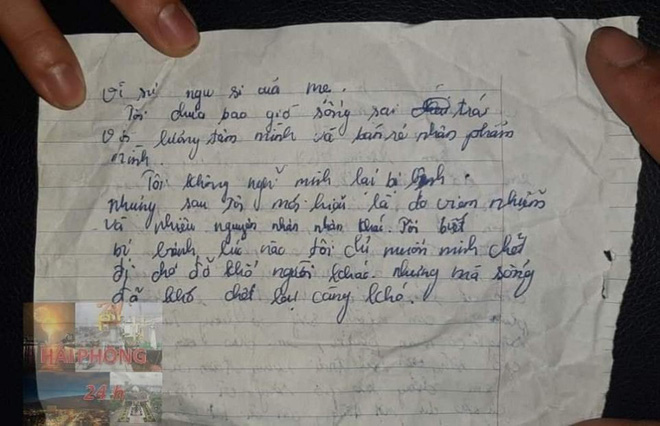 vì sự ngu si của mẹ.
Tôi chưa bao giờ sống sai trái
với lương tâm mình và bán rẻ nhân phẩm
mình.
Tôi không nghĩ mình lại bị bệnh.
nhưng sau tôi mới là do viêm nhiễm
vì nhiều nguyên nhân nhân khác. Tôi biết
bị bệnh lúc nào tôi chỉ muốn mình chết
đi cho đỡ khổ người khác. nhưng mà sống
đã khó chết lại càng khó.
24
HẢI PHÒNG
24h